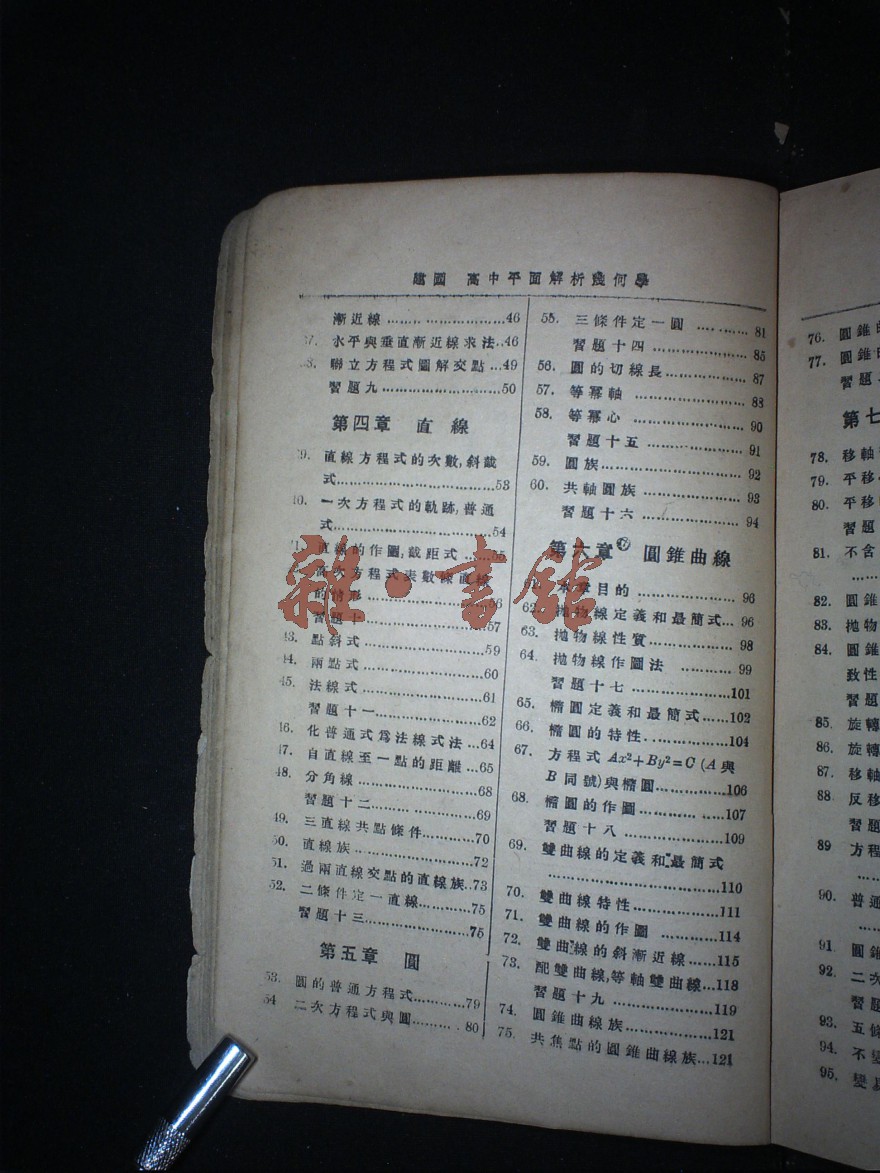 建國 高中平面解析幾何學
漸近線..................46
水平與垂直漸近線求法..46
聯立方程式圖解交點...49
習題九..................50
第四章 直線
直線方程式的次數,斜截
式..................53
一次方程式的軌跡,普通
式..................54
直線的作圖,截距式......55
高次方程式表數條直線
的情形..................56
習題十..................57
點斜式..................59
兩點式..................60
法線式..................61
習題十一..................62
化普通式爲法線式法...64
自直線至一點的距離...65
48. 分角線..................68
習題十二..................69
49. 三直線共點條件.........70
50. 直線族..................72
51. 過兩直線交點的直線族..73
52. 二條件定一直線.........75
習題十三..................75
第五章 圓
53. 圓的普通方程式.........79
54 二次方程式與圓.........80
55. 三條件定一圓 ......... 81
習題十四.................. 85
56. 圓的切線長............... 87
57. 等冪軸 .................. 88
58. 等冪心 .................. 90
習題十五 .................. 91
59. 圓族..................... 92
60. 共軸圓族 ............... 93
習題十六.................. 94
第六章 圓錐曲線
本章目的 .................. 96
62. 拋物線定義和最簡式... 96
63. 拋物線性質............... 98
64. 拋物線作圖法 ......... 99
習題十七 ..................101
65. 橢圓定義和最簡式......102
66. 橢圓的特性...............104
67. 方程式 Ax²+By²=C (A與
B 同號)與橢圓............106
68. 橢圓的作圖 ............107
習題十八 ..................109
69. 雙曲線的定義和最簡式
..................110
70. 雙曲線特性...............111
71. 雙曲線的作圖 .........114
72. 雙曲線的斜漸近線......115
73. 配雙曲線,等軸雙曲線...118
習題十九 ..................119
74. 圓錐曲線族...............121
75. 共焦點的圓錐曲線族...121
76. 圓錐
77. 圓錐
習題
第七
78. 移軸
79. 平移
80. 平移
習題
81. 不含
82. 圓錐
83. 拋物
84. 圓錐
致性
習題
85. 旋轉
86. 旋轉
87. 移軸
88 反移
習題
89 方程
90. 普通
91. 圓錐
92. 二次
習題
93. 五條
94. 不變
95. 變
雜·書館